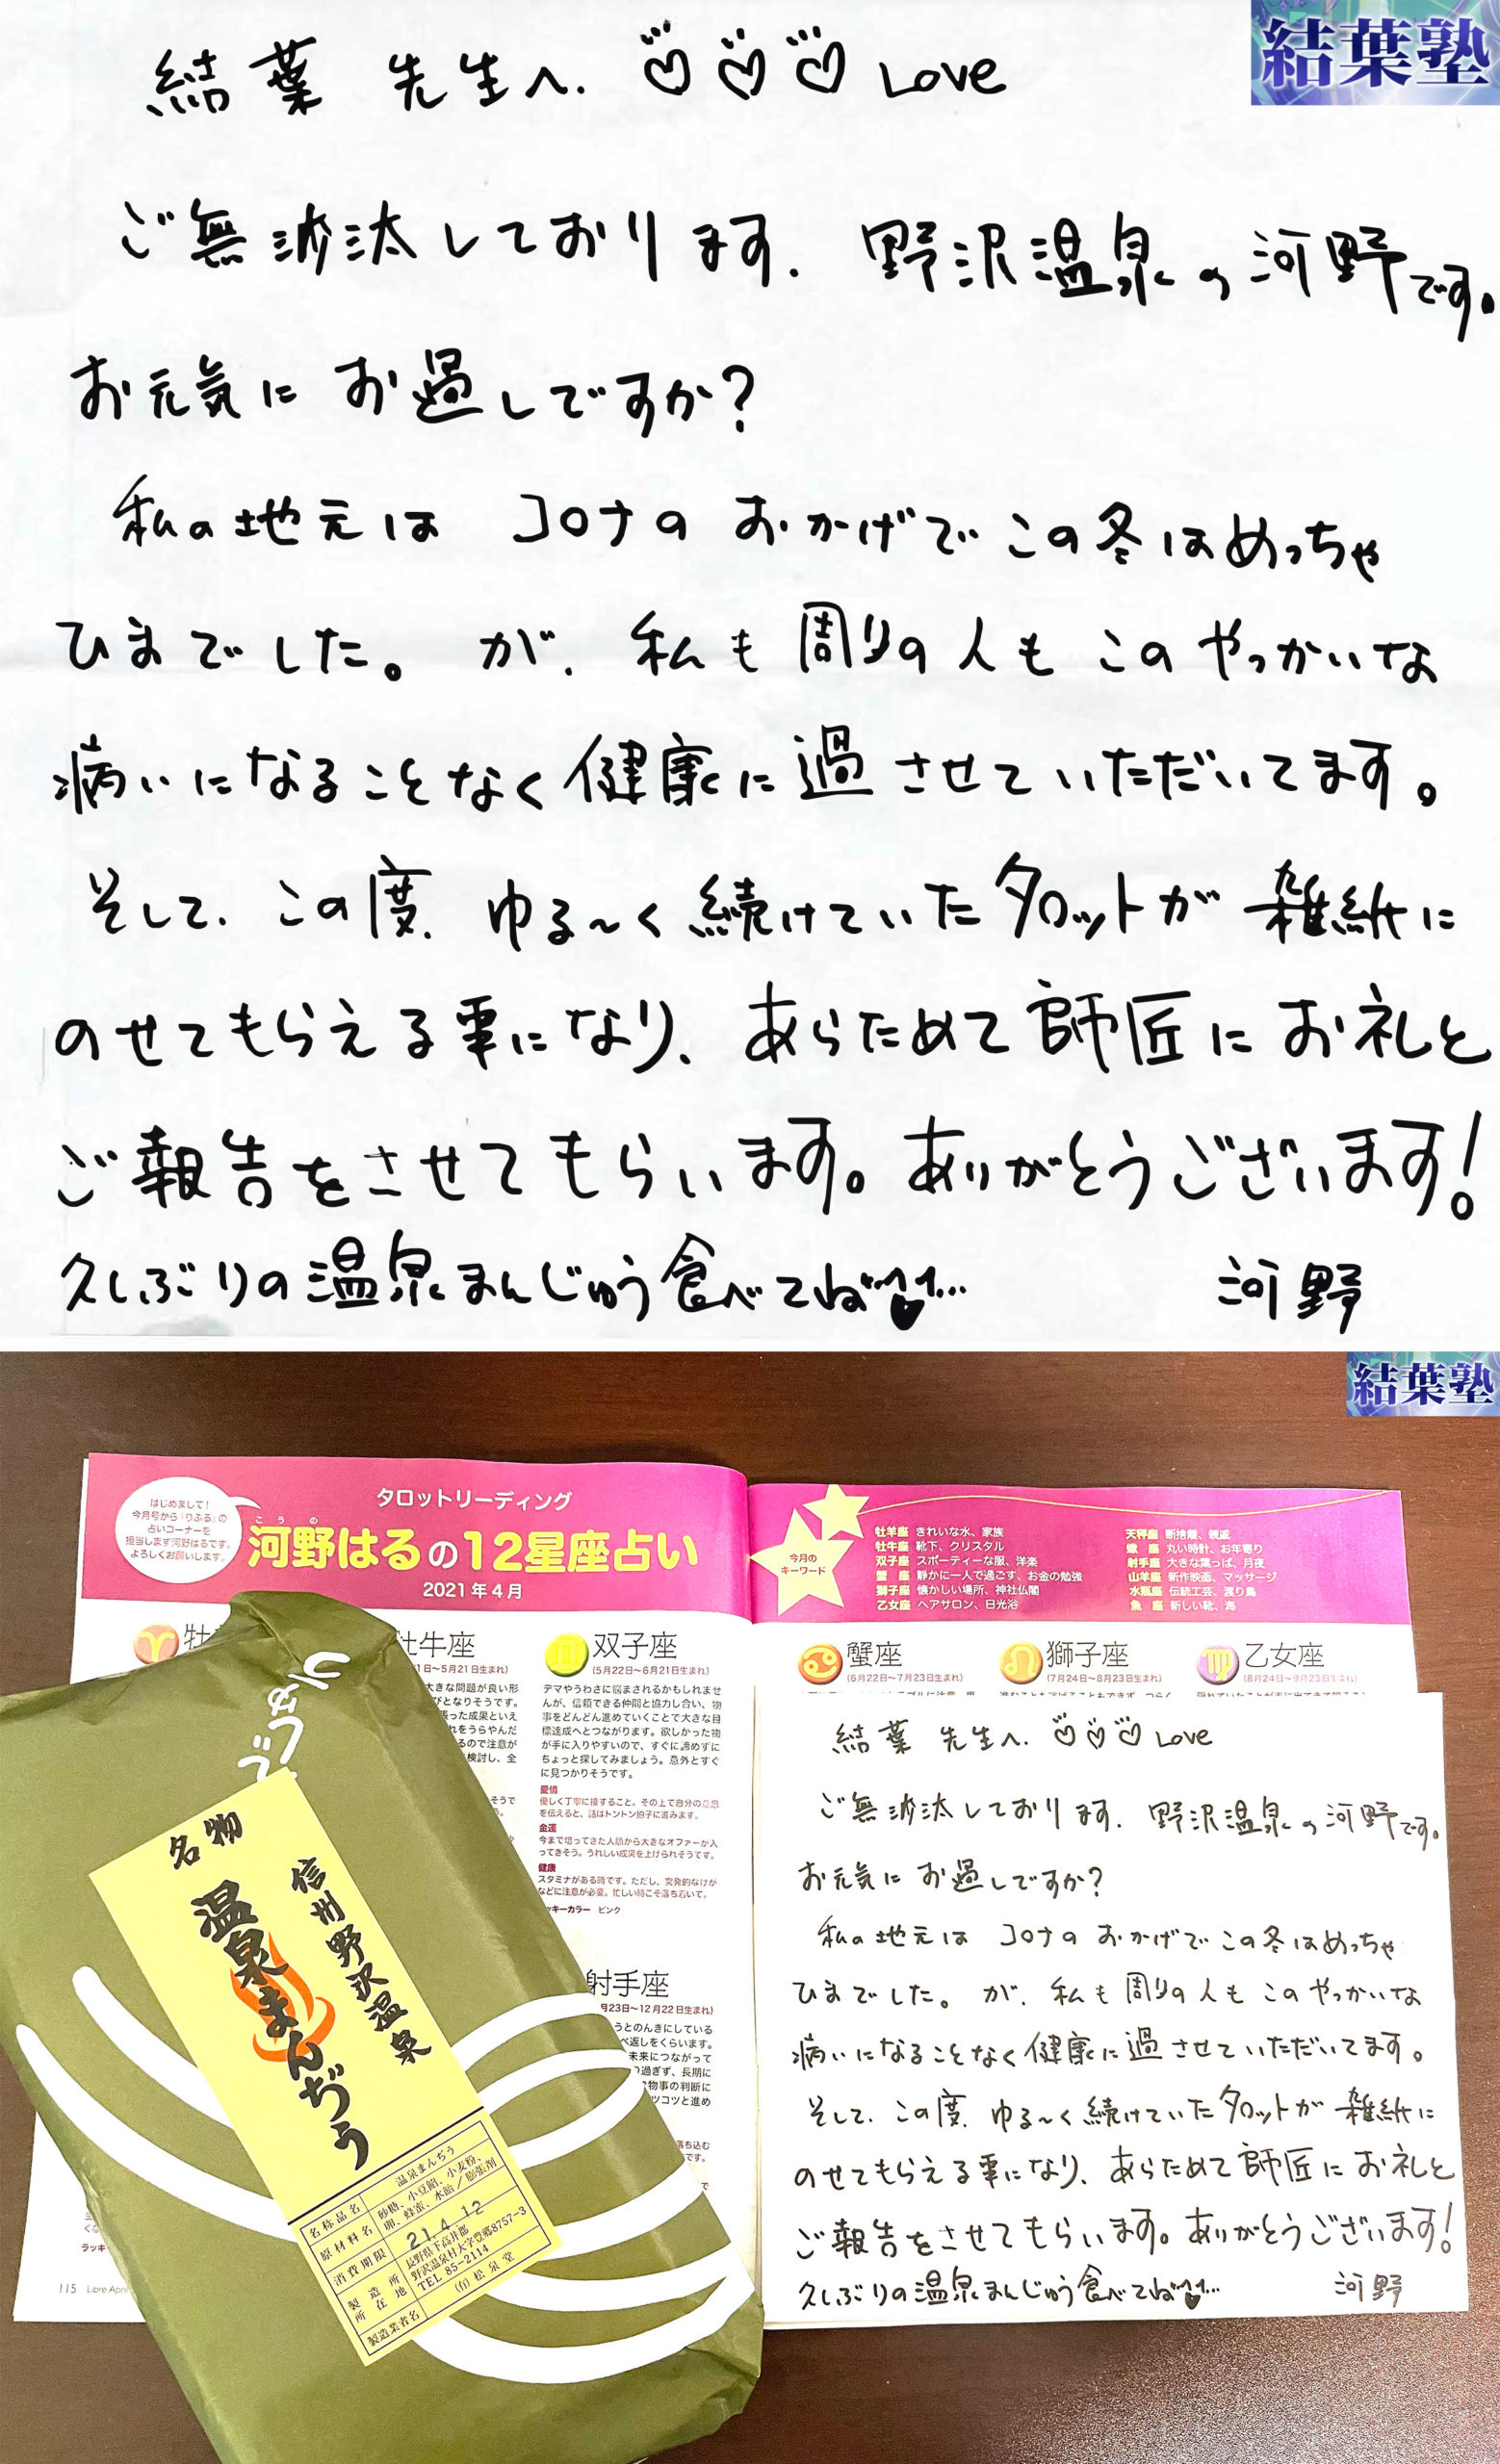 結葉塾
結葉 先生へ. Love
ご無沙汰しております. 野沢温泉の河野です。
お元気にお過しですか?
私の地元は コロナのおかげでこの冬はめっちゃ
ひまでした。が、私も周りの人もこのやっかいな
病いになることなく健康に過させていただいてます。
そして、この度、ゆる〜く続けていたタロットが雑紙に
のせてもらえる事になり、あらためて師匠にお礼と
ご報告をさせてもらいます。ありがとうございます!
久しぶりの温泉まんじゅう食べてね…
河野
結葉塾
はじめまして!
今月号から「りふる」の
占いコーナーを
担当します河野はるです。
よろしくお願いします。
タロットリーディング
こうの
河野はるの12星座占い
2021年4月
今月の
キーワード
牡羊座 きれいな水、家族
牡牛座 靴下、クリスタル
双子座 スポーティーな服、洋楽
蟹 座 静かに一人で過ごす、お金の勉強
獅子座 懐かしい場所、神社仏閣
乙女座 ヘアサロン、日光浴
天秤座 断捨離、親戚
蠍 座 丸い時計、お年寄り
射手座 大きな葉っぱ、月夜
山羊座 新作映画、マッサージ
水瓶座 伝統工芸、渡り鳥
魚 座 新しい靴、海
牡
牡牛座
1日〜5月21日生まれ)
大きな問題が良い形
びとなりそうです。
張った成果といえ
れをうらやんだ
るので注意が
検討し、全
双子座
(5月22日〜6月21日生まれ)
デマやうわさに悩まされるかもしれませ
んが、信頼できる仲間と協力し合い、物
事をどんどん進めていくことで大きな目
標達成へとつながります。欲しかった物
が手に入りやすいので、すぐに諦めずに
ちょっと探してみましょう。意外とすぐ
に見つかりそうです。
愛情
優しく丁寧に接すること。その上で自分の意思
を伝えると、話はトントン拍子に進みます。
金運
今まで培ってきた人脈から大きなオファーが入
ってきそう。うれしい成果を上げられそうです。
健康
スタミナがある時です。ただし、突発的なけが
などに注意が必要。忙しい時こそ落ち着いて。
ッキーカラー ピンク
蟹座
(6月22日〜7月23日生まれ)
獅子座
(7月24日〜8月23日生まれ)
乙女座
(8月24日〜9月23日生まれ)
射手座
月23日〜12月22日生まれ)
うとのんきにしている
べ返しをくらいます。
未来につながって
り過ぎず、長期に
物事の判断に
ツコツと進め
ラッキー
115 Libre April
名物
温泉まんぢう
信州野沢温泉
名称品名 温泉まんぢう
原材料名 砂糖、小豆餡、小麦粉、
卵、蜂蜜、水飴/膨張剤
消費期限 21.4.12
製造所所在地 長野県下高井郡
野沢温泉村大字豊郷8757-3
TEL 85-2114
製造業者名 (有)松泉堂
結葉 先生へ. Love
ご無沙汰しております. 野沢温泉の河野です。
お元気にお過しですか?
私の地元は コロナのおかげでこの冬はめっちゃ
ひまでした。が、私も周りの人もこのやっかいな
病いになることなく健康に過させていただいてます。
そして、この度、ゆる〜く続けていたタロットが雑紙に
のせてもらえる事になり、あらためて師匠にお礼と
ご報告をさせてもらいます。ありがとうございます!
久しぶりの温泉まんじゅう食べてね…
河野